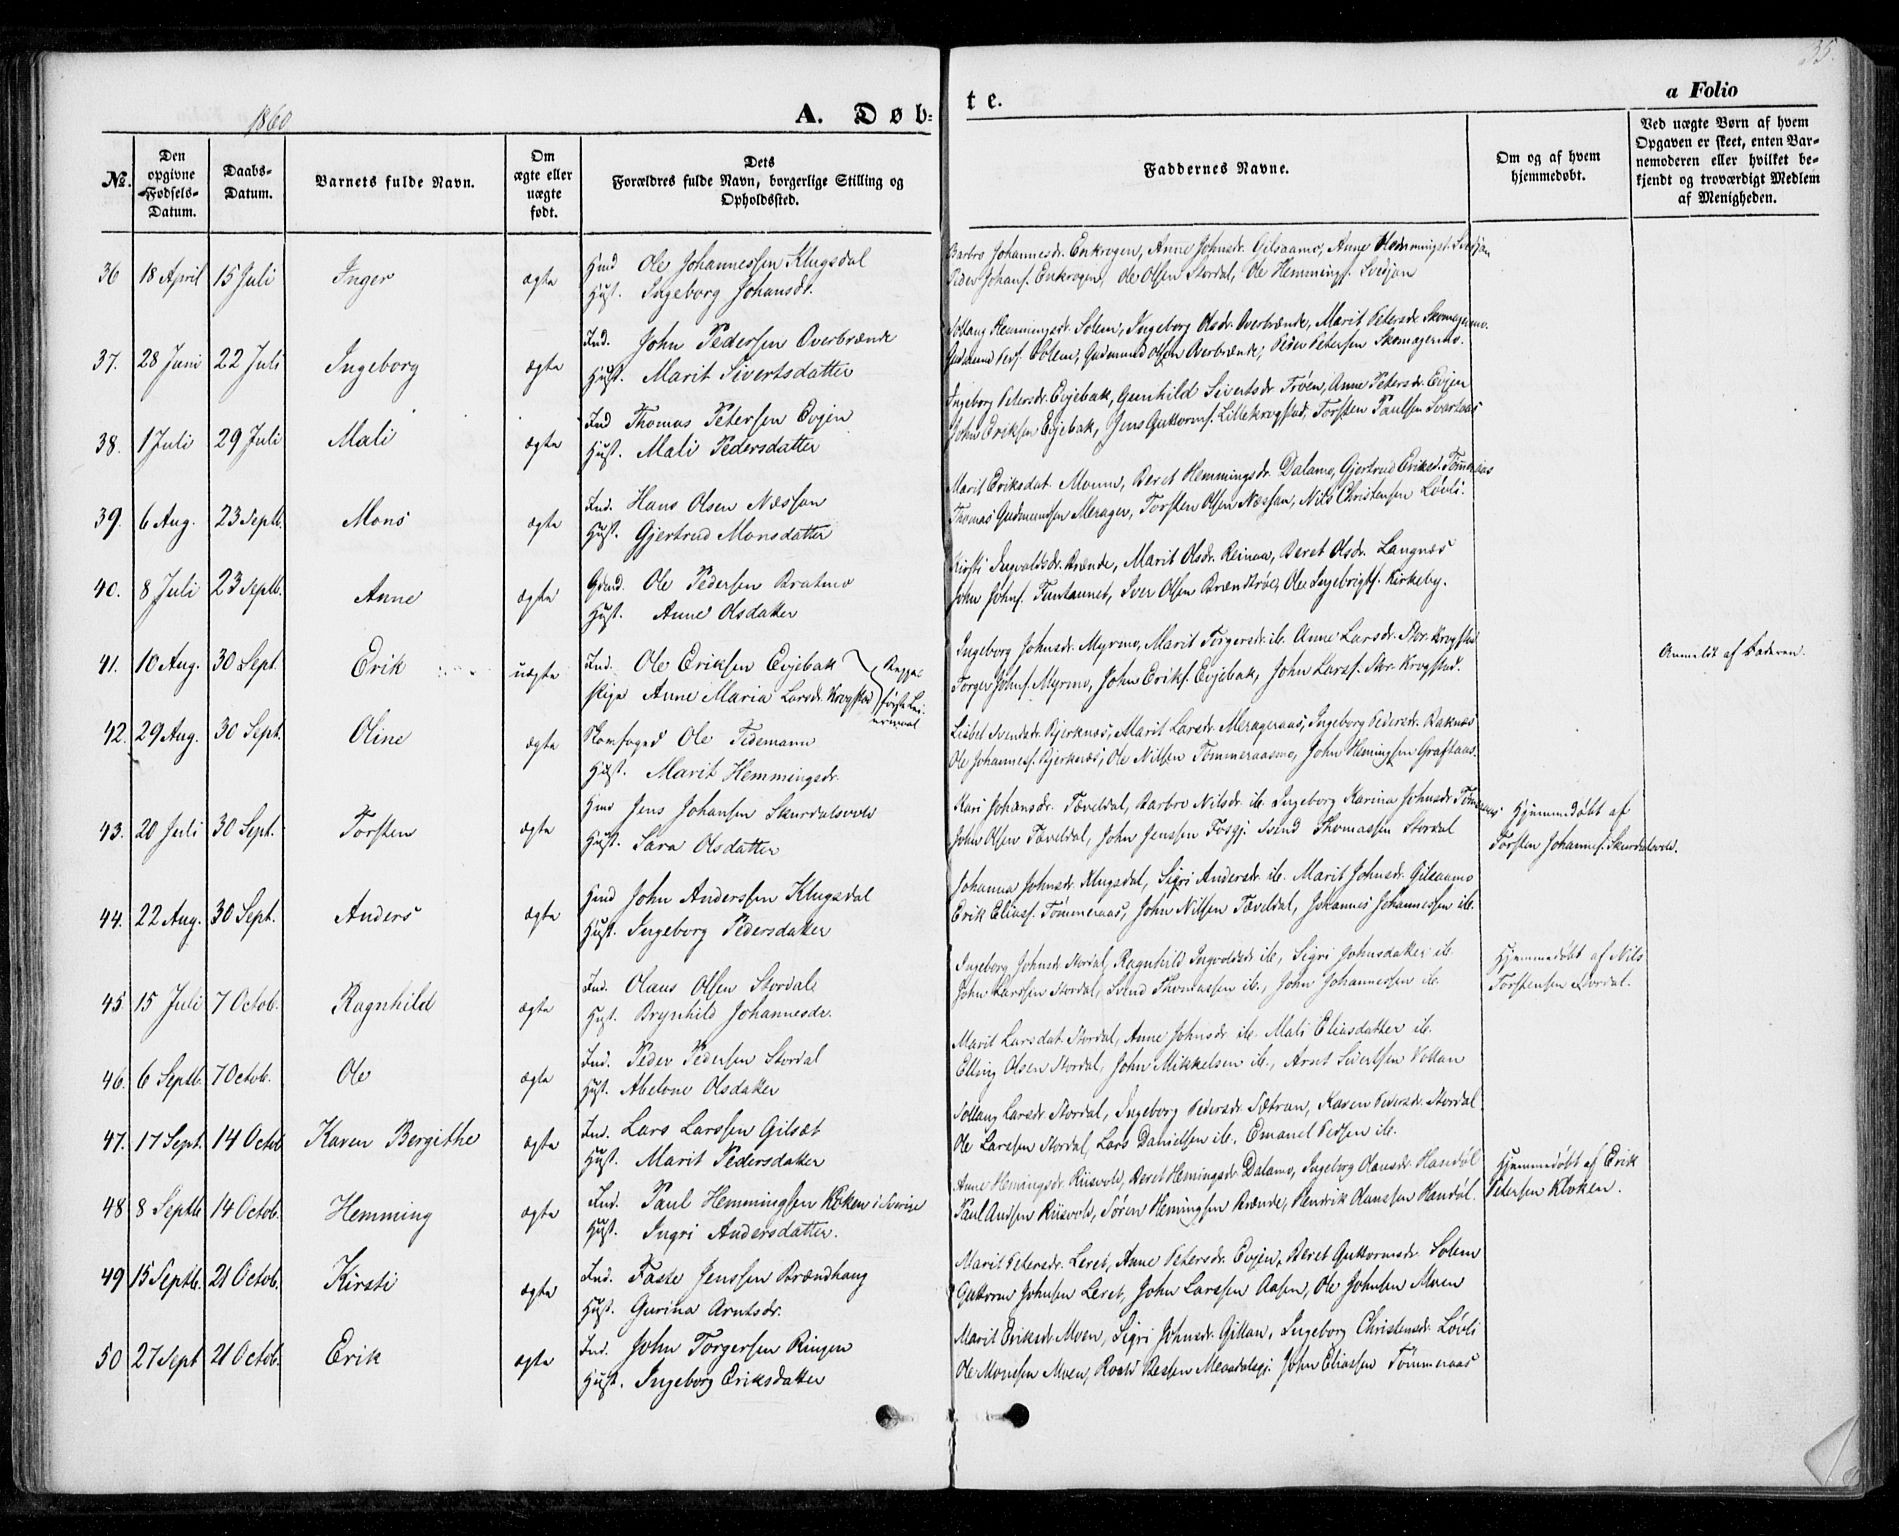 35.
1860
A. Døb-
te.
a Folio
No.
Den opgivne Fødsels-Datum.
Daabs-Datum.
Barnets fulde Navn.
Om ægte eller uægte født.
Dets Forældres fulde Navn, borgerlige Stilling og Opholdssted.
Faddernes Navne.
Om og af hvem hjemmedøbt.
Ved uægte Børn af hvem Opgaven er skeet, enten Barnemoderen eller hvilket bekjendt og troværdigt Medlem af Menigheden.
36 18 April 15 Juli Inger ægte Ole Johannessen Klugsdal
Hust. Ingeborg Johansdr.
Barbro Johannesdr. Enkrogen, Anne Johnsdr. Gilsaamo, Anne Hemmingsd. Svedjan
Peder Johans. Enkrogen, Ole Olsen Stordal, Ole Hemmings. Svedjan
37. 28 Juni 22 Juli Ingeborg ægte Ind. John Pedersen Overbrænde
Hust. Marit Sivertsdatter
Sollaug Hemmingsdr. Solem, Ingeborg Olsdr. Overbrænde, Marit Petersdr. Skomagermo.
Gudmund Peds. Solem, Gudmund Olsen Overbrænde, Peder Petersen Skomagermo.
38. 1 Juli 29 Juli Mali ægte Ind Thomas Petersen Evjen
Hust. Mali Pedersdatter
Ingeborg Petersdr. Evjebak, Gunhild Sivertsdr. Trøen, Anne Petersdr. Evjen
John Eriksen Evjebak, Jens Guttorms. Lillekrogstad, Torsten Paulsen Svartaas
39. 6 Aug. 23 Septb. Mons ægte Ind. Hans Olsen Næssan
Hust. Gjertrud Monsdatter
Marit Eriksdat. Moenn, Beret Hemmingsdr. Dalamo, Gjertrud Eriksd. Tømmeraas
Thomas Gudmundsen Merager, Torsten Olsen Næssan, Nils Christensen Løvli.
40. 8 Juli 23 Septb. Anne ægte Gaard. Ole Pedersen Bratmo
Hust. Anne Olsdatter
Kirsti Ingvaldsdr. Brænde, Marit Olsdr. Reinaa, Beret Olsdr. Langnæs
John Johns. Funtaunet, Iver Olsen Brændtrøe, Ole Ingebrigts. Kirkeby.
41. 10 Aug. 30 Sept. Erik uægte Ind. Ole Eriksen Evjebak
Pige Anne Maria Larsdr. Krogstad
første Lei-
ermaal
Ingeborg Johnsdr. Myrmo, Marit Torgersdr. ib. Anne Larsdr. Stor-Krogstad
Torger Johns. Myrmo, John Eriks. Evjebak, John Larss. Stor-Krogstad.
Anmeldt af Faderen.
42. 29 Aug. 30 Sept. Oline ægte Skovfoged Ole Tidemann
Hust. Marit Hemmingsdr.
Lisbet Svendsdr. Bjerknæs, Marit Larsdr. Merageraas, Ingeborg Pedersdr. Baknæs
Ole Johanness. Bjerknæs, Ole Nilsen Tømmeraasmo, John Hemingsen Graftaas.
43. 20 Juli 30 Sept. Torsten ægte Jens Johansen Skurdalsvold
Hust. Sara Olsdatter
Kari Johansdr. Tæveldal, Barbro Nilsdr. ib. Ingeborg Karina Johnsdr. Tømmeraas
John Olsen Tæveldal, John Jenssen Svend Thomassen Stordal
Hjemmedøbt af
Torsten Johanness. Skurdalsvold.
44. 22 Aug. 30 Sept. Anders ægte John Anderssen Klugsdal
Hust. Ingeborg Pedersdatter
Johanna Johnsdr. Klugsdal, Sigri Andersdr. ib. Marit Johnsdr. Gilsaamo
Erik Eliass. Tømmeraas, John Nilsen Tæveldal, Johannes Johannessen ib.
45. 15 Juli 7 Octob. Ragnhild ægte Ind. Olaus Olsen Stordal
Hust. Brynhild Johannesdr.
Ingeborg Johnsdr Stordal, Ragnhild Ingvoldsdr ib., Sigri Johnsdatter ib.
John Larssen Stordal, Svend Thomassen ib., John Johannessen ib.
Hjemmedøbt af Nils
Torstensen Stordal.
46. 6 Septb. 7 Octob. Ole ægte Ind. Peder Pedersen Stordal
Hust. Abelone Olsdatter
Marit Larsdat. Stordal, Anne Johnsdr. ib. Mali Eliasdatter ib.
Elling Olsen Stordal, John Mikkelsen ib., Arnt Sivertsen Vollan
47. 17 Sept. 14 Octob Karen Bergithe ægte Ind. Lars Larssen Gilsæt
Hust. Marit Pedersdatter
Sollaug Larsdr. Stordal, Ingeborg Pedersdr. Sætran, Karen Pedersdr. Stordal
Ole Larssen Stordal, Lars Danielsen ib. Emanel Pedsen ib.
48 8 Septb 14 Octob. Hemming ægte Ind. Paul Hemmingsen Kloken i Sverige
Hust. Ingri Andersdatter.
Anne Hemingsdr. Riisvold, Beret Hemingsdr. Dalamo, Ingeborg Olausdr. Handøl
Paul Andsen Riisvold, Søren Hemingsen Brænde, Hendrik Olaussen Handøl.
Hjemmedøbt af Erik
Petersen Kloken.
49 15 Septb. 21 Octob. Kirsti ægte Ind. Faste Jenssen Brændhaug
Hust. Gurina Arntsdr.
Marit Petersdr. Leret, Anne Petersdr. Evjen, Beret Guttormsdr. Solem
Guttorm Johnsen Leret, John Larssen Aasen, Ole Johnsen Moen
50 27 Sept 21 Octob. Erik ægte Ind. John Torgersen Ringen
Hust. Ingeborg Eriksdatter
Marit Eriksdr. Moen, Sigri Johnsdr. Gillan, Ingeborg Christensdr. Løvli
Ole Monsen Moen, John Eliassen Tømmeraas